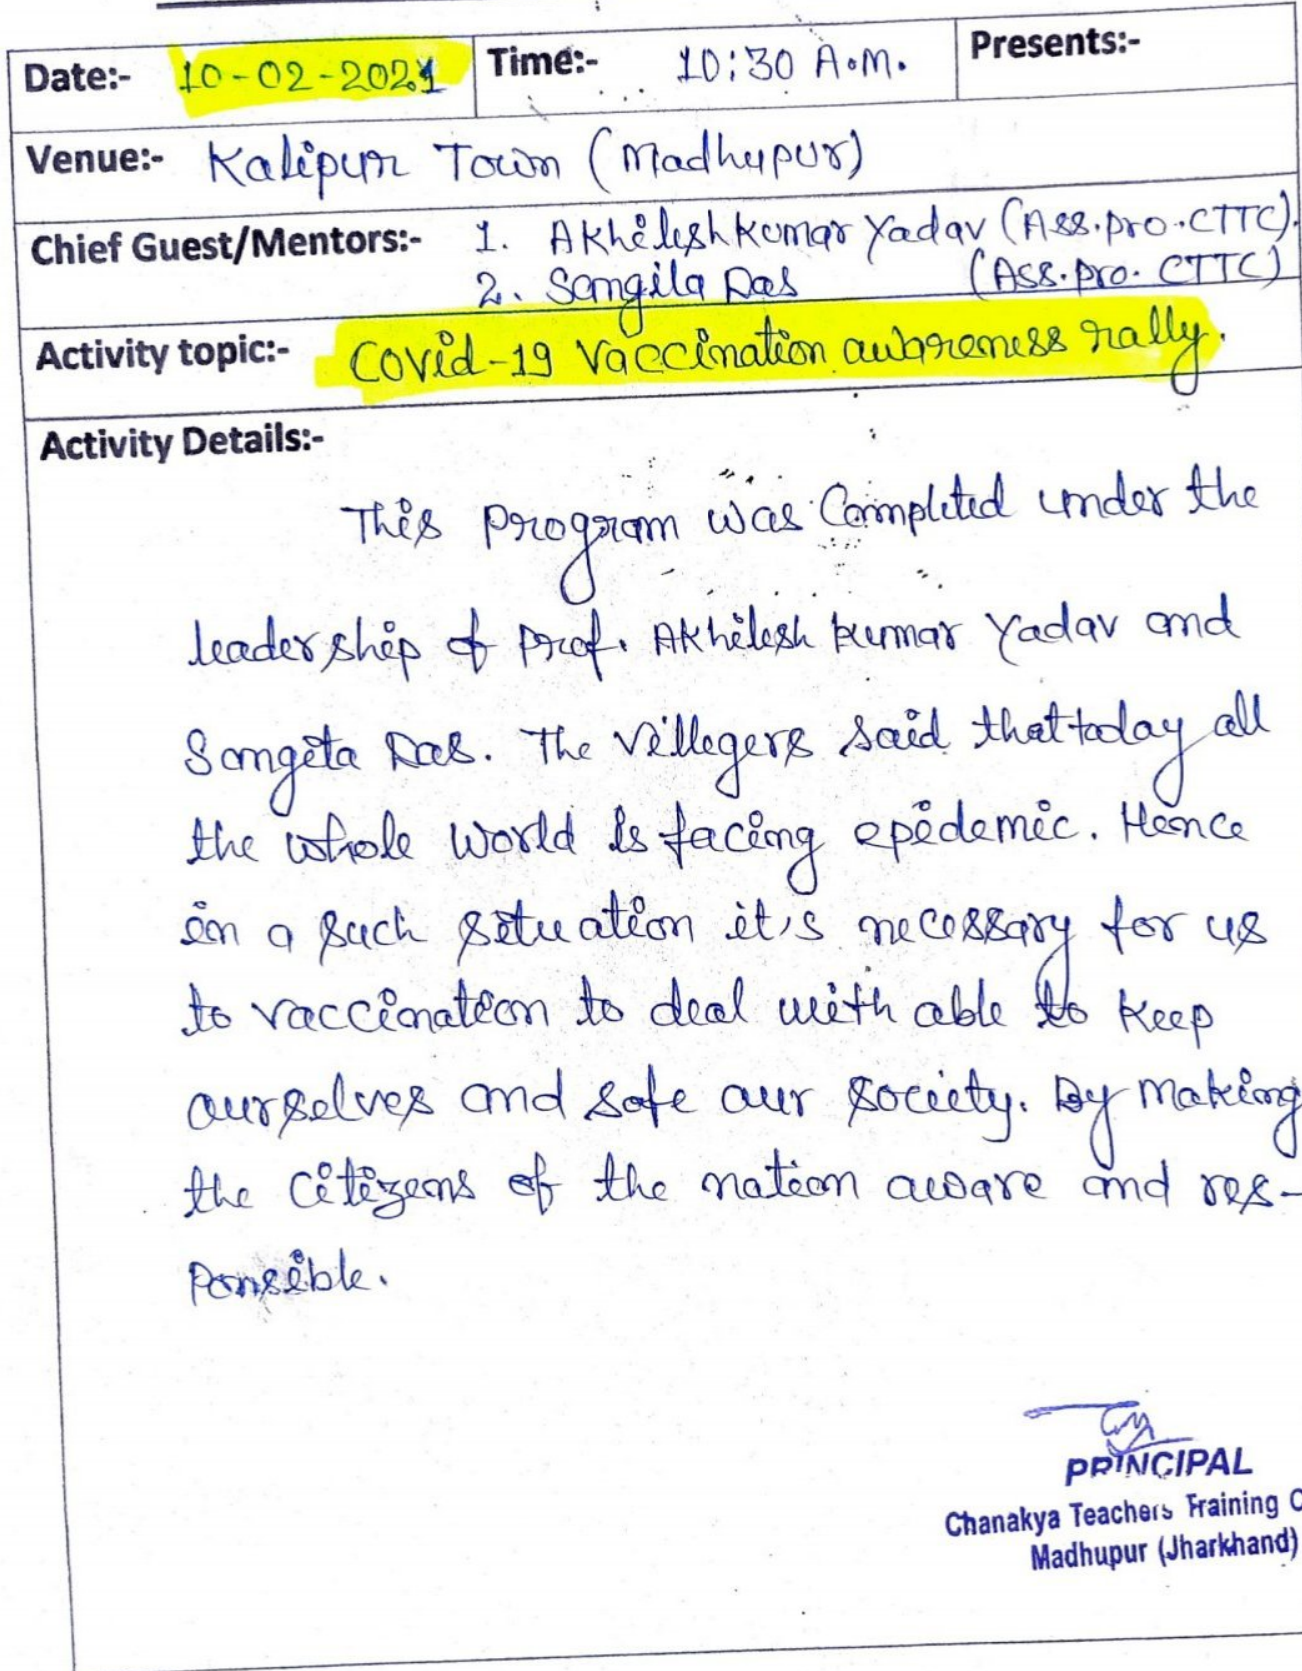 Date:- 10-02-2021 Time:- 10:30 A.M. Presents:-
Venue:- Kalipur Town (Madhupur)
Chief Guest/Mentors:- 1. Akhilesh Kumar Yadav (Ass.pro.CTTC).
2. Sangita Das (Ass.pro. CTTC)
Activity topic:- Covid-19 Vaccination awareness rally.
Activity Details:-
This program was Completed under the
leadership of prof. Akhilesh kumar Yadav and
Sangita Das. The villegers said that today all
the whole world is facing epidemic. Hence
in a such situation it's necessary for us
to vaccination to deal with able to keep
ourselves and safe our society. By making
the citizens of the nation aware and res-
ponsible.
PRINCIPAL
Chanakya Teachers Training C
Madhupur (Jharkhand)